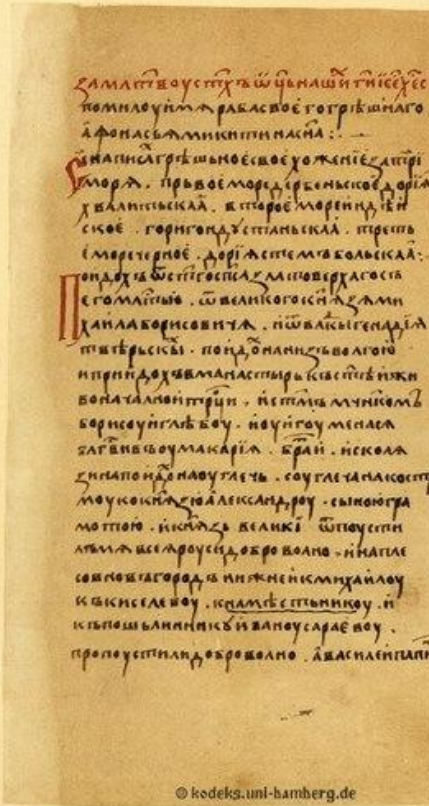 за мл҃твоу ст҃хъ ѿц҃ь нашиⷯ ги҃ і҃се хе҃ с
помилоуй мя раба своего грѣшнаго
афонасья микитина сн҃а :·
Ꙁаписаⷯ грѣшьное свое хожение за три
моря . прьвое море дербеньское дория
хвалитьскаа . второе море индѣи
ское . горигондустаньскаа . треть
е море черное . дория стемъбольскаа :·
Поидохъ ѿ ст҃го сп҃са златоверхаго съ
его мл҃тью . ѿ великого кн҃язя ми
хаила борисовичя . и ѿ влⷣкы генадия
твѣрьскы . поидоⷯ на низъ волгою
и приидохъ в манастырь къ ст҃ѣи жи
воначалной трⷪци . и ст҃мъ мчн҃комъ
борисоу и глѣбоу . и оу игоумена ся
блг҃вивъ оу макария . браⷮи . и с коля
зина поидоⷯ на оуглечь . с оуглеча на кост
моу ко кн҃язю александроу . с ыною гра
мотою . и кн҃язь великі ѿпоусти
лъ мя всея роуси доброволно . и на пле
со в новъгородъ нижней к михайлоу
къ киселевоу . к намѣстьникоу . и
къ пошьлинникуй ваноу сараевоу .
пропоустили доброволно . а василей папи
© kodeks.uni-bamberg.de